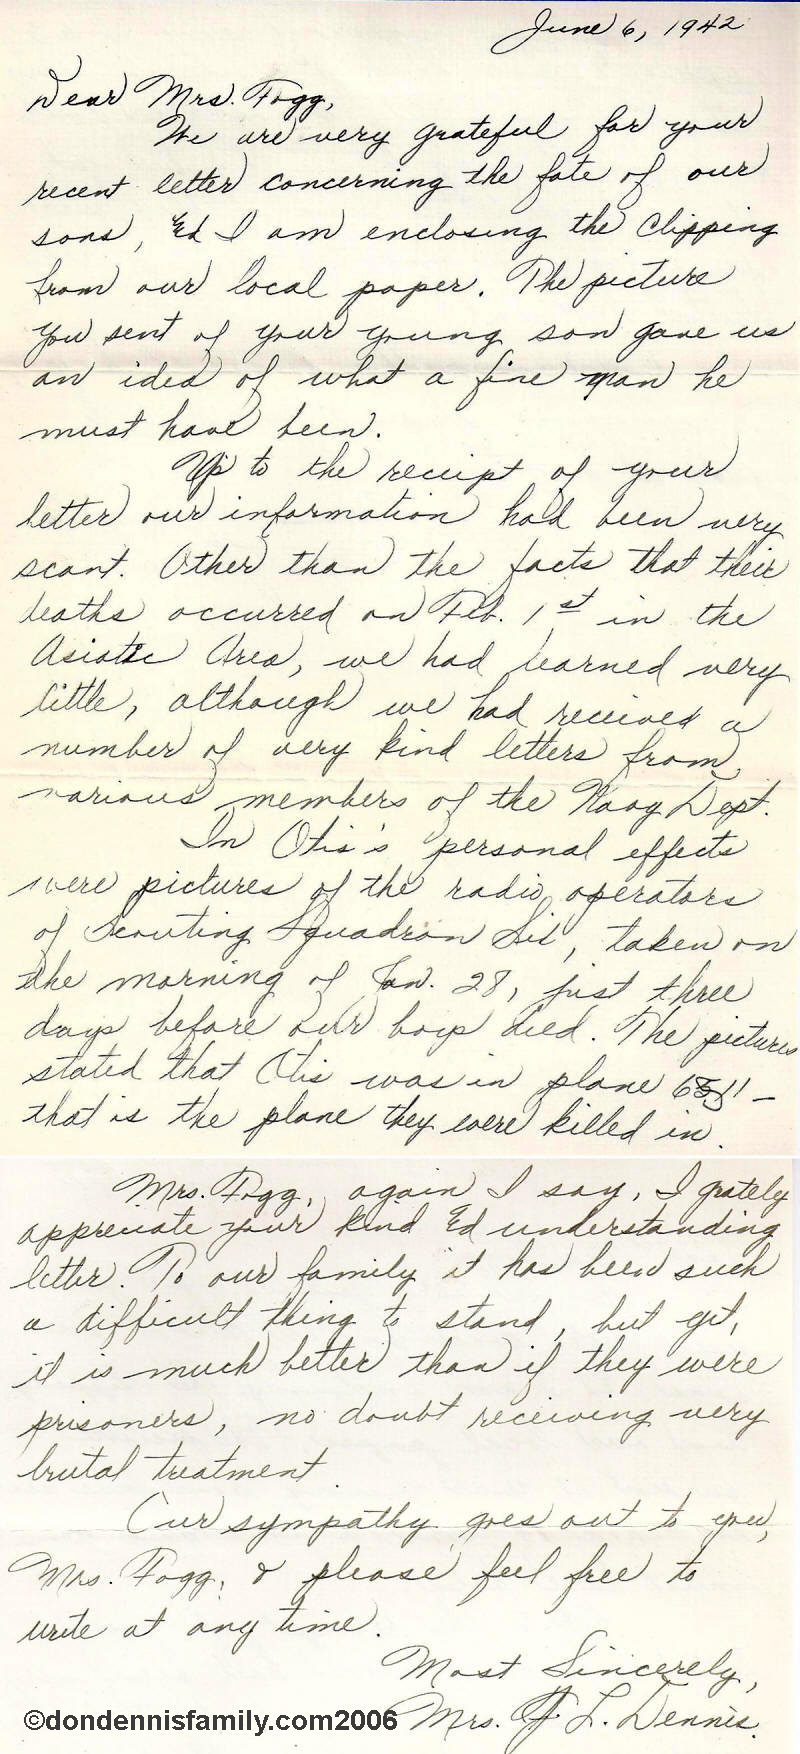 June 6, 1942
Dear Mrs. Fogg,
We are very grateful for your
recent letter concerning the fate of our
sons, & I am enclosing the clipping
from our local paper. The picture
you sent of your young son gave us
an idea of what a fine man he
must have been.
Up to the receipt of your
letter our information had been very
scant. Other than the facts that their
deaths occurred on Feb. 1st in the
Asiatic Area, we had learned very
little, although we had received a
number of very kind letters from
various members of the Navy Dept.
In Otis's personal effects
were pictures of the radio operators
of Scouting Squadron Six, taken on
the morning of Jan. 28, just three
days before our boys died. The pictures
stated that Otis was in plane
that is the plane they were killed in.
Mrs. Fogg, again I say, I grately
appreciate your kind & understanding
letter. To our family it has been such
a difficult thing to stand, but yet,
it is much better than if they were
prisoners, no doubt receiving very
brutal treatment.
Our sympathy goes out to you,
Mrs. Fogg, & please feel free to
write at any time.
Most Sincerely,
Mrs. J. L. Dennis.
©dondennisfamily.com2006